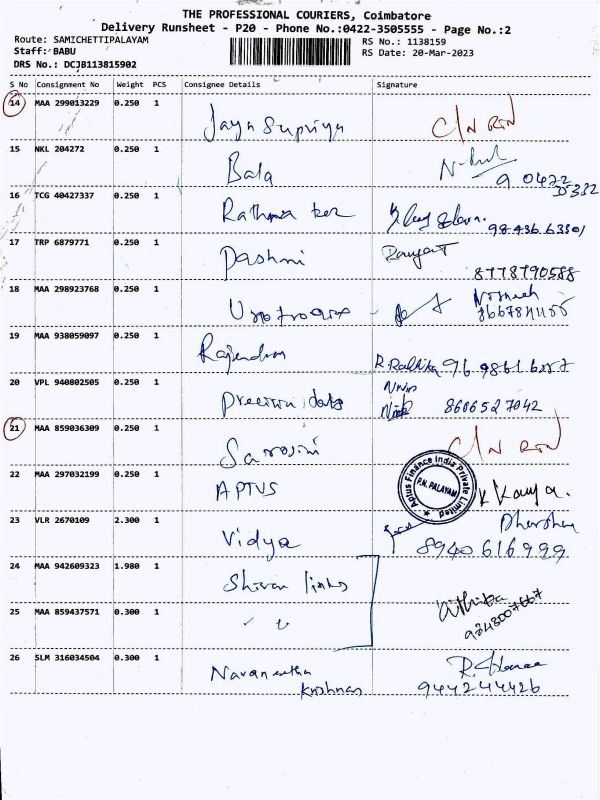 THE PROFESSIONAL COURIERS, Coimbatore
Delivery Runsheet - P20 - Phone No.:0422-3505555 - Page No.:2
Route: SAMICHETTIPALAYAM RS No.: 1138159
Staff: BABU RS Date: 20-Mar-2023
DRS No.: DCJB113815902
S No Consignment No Weight PCS Consignee Details Signature
14 MAA 299013229 0.250 1 Jaya Supriya C/N RTN
15 NKL 204272 0.250 1 Bala
16 TCG 40427337 0.250 1 98436.63301
17 TRP 6879771 0.250 1 Pashmi 8778790588
18 MAA 298923768 0.250 1
19 MAA 938059097 0.250 1 Rajendran R. Radhika
20 VPL 940802505 0.250 1 Precision data 8606527042
21 MAA 859036309 0.250 1 Sarojini C/N RTN
22 MAA 297032199 0.250 1 APTUS Aptus Finance India Private Limited P.N. PALAYAM K Kavya.
23 VLR 2670109 2.300 1 Vidya 8940616999
24 MAA 942609323 1.980 1 Shivan links
25 MAA 859437571 0.300 1
26 SLM 316034504 0.300 1 Navaneetha
krishnan 9442244426